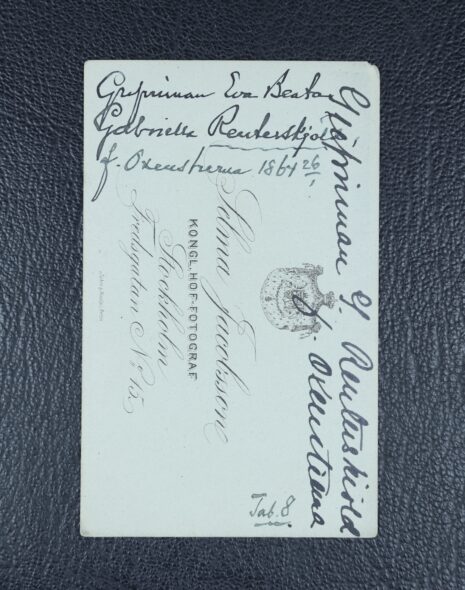 Grefvinnan Eva Beata
Gabriella Reuterskjöld
f. Oxenstierna 1864 26/1
Grefvinnan G. Reuterskiöld
f. Oxenstierna
Selma Jacobsson
KONGL. HOF-FOTOGRAF
Stockholm
Fredsgatan No 15.
Tab. 8